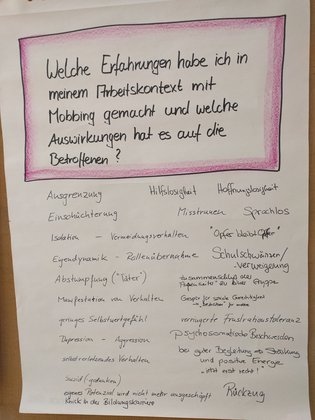 Welche Erfahrungen habe ich in
meinem Arbeitskontext mit
Mobbing gemacht und welche
Auswirkungen hat es auf die
Betroffenen?
Ausgrenzung Hilfslosigkeit Hoffnungslosigkeit
Einschüchterung Misstrauen Sprachlos
Isolation - Vermeidungsverhalten "Opfer bleibt Opfer"
Eigendynamik - Rollenübernahme Schulschwänzen/
-verweigerung
Abstumpfung ("Täter") zusammenschluss der
zu einer Gruppe
Manifestation von Verhalten Gespür für soziale Gerechtigkeit
geringes Selbstwertgefühl verringerte Frustrationstoleranz
Depression - Aggression psychosomatische Beschwerden
selbstverletzendes Verhalten bei guter Begleitung => Stärkung
und positive Energie
"jetzt erst recht!"
Suizid (gedanken) Rückzug
eigenes Potenzial wird nicht mehr ausgeschöpft
Knick in der Bildungskarriere